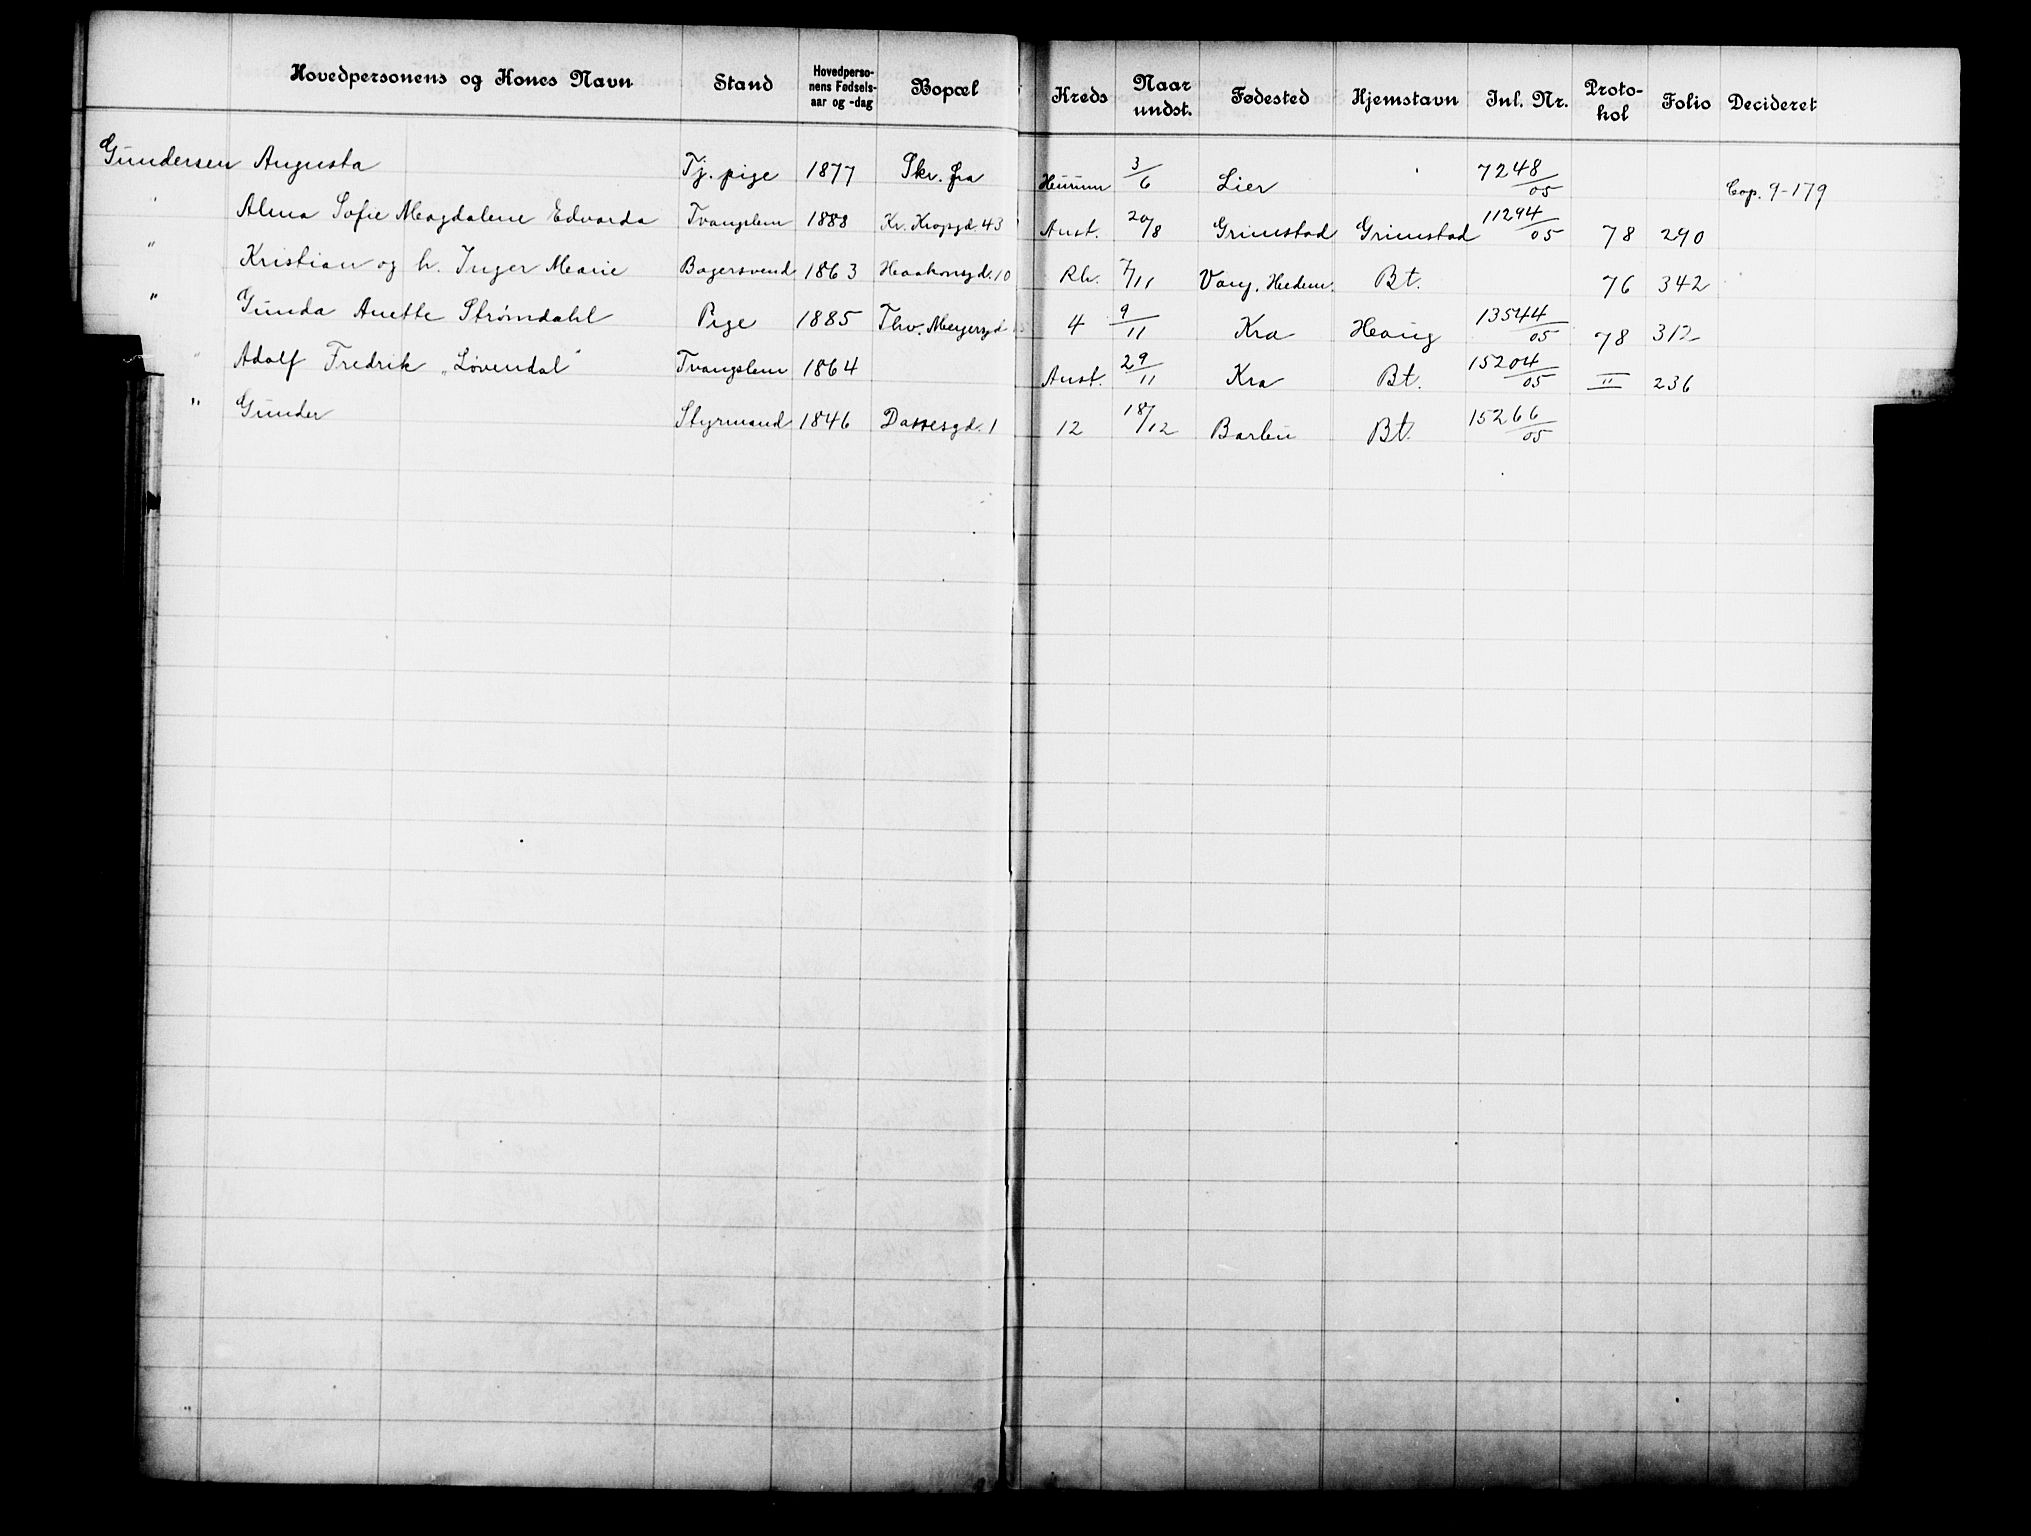 Hovedpersonens og Kones Navn Stand Hovedperso-nens Fødsels-aar og -dag Bopæl Kreds Naar undst. Fødested Hjemstavn Inl. Nr. Proto-kol Folio Decideret
Gundersen Augusta Tj. pige 1877 Skr. fra Hurum 3/6 Lier 7248/05 Cop. 9-179
" Alma Sofie Magdalene Edvarda Tvangslem 1888 Kr. Krogsgd. 43 Anst. 20/8 Grimstad Grimstad 11294/05 78 290
" Kristian og h. Inger Marie Bagersvend 1863 Haakonsgd. 10 Rh. 7/11 Vang. Hedem. Bt. 76 342
" Gunda Anette Strømdahl Pige 1885 Thv. Meyersgd 4 9/11 Kra Haug 13544/05 78 312
" Adolf Fredrik „Løvendal" Tvangslem 1864 Anst. 29/11 Kra Bt. 15204/05 II 236
" Gunder Styrmand 1846 Dassesgd. 1 12 18/12 Barbu Bt. 15266/05